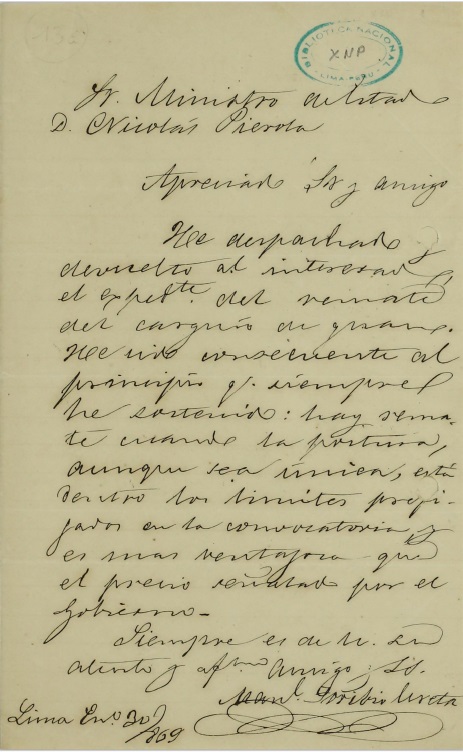 135
BIBLIOTECA NACIONAL
XNP
LIMA-PERU
Sr. Ministro de Estado
D. Nicolás Pierola
Apreciado Sr y amigo
He despachado y
devuelto al interesado,
el expdte. del remate
del carguio de guano.
He sido consecuente al
principio q. siempre
he sostenido: hay rema-
te cuando la postura,
aunque sea única, está
dentro los limites prefi-
jados en la convocatoria y
es mas ventajosa que
el precio señalado por el
Gobierno-
Siempre es de U. su
atento y afmo amigo y SS.
Manl. Toribio Ureta
Lima Eno. 30/869